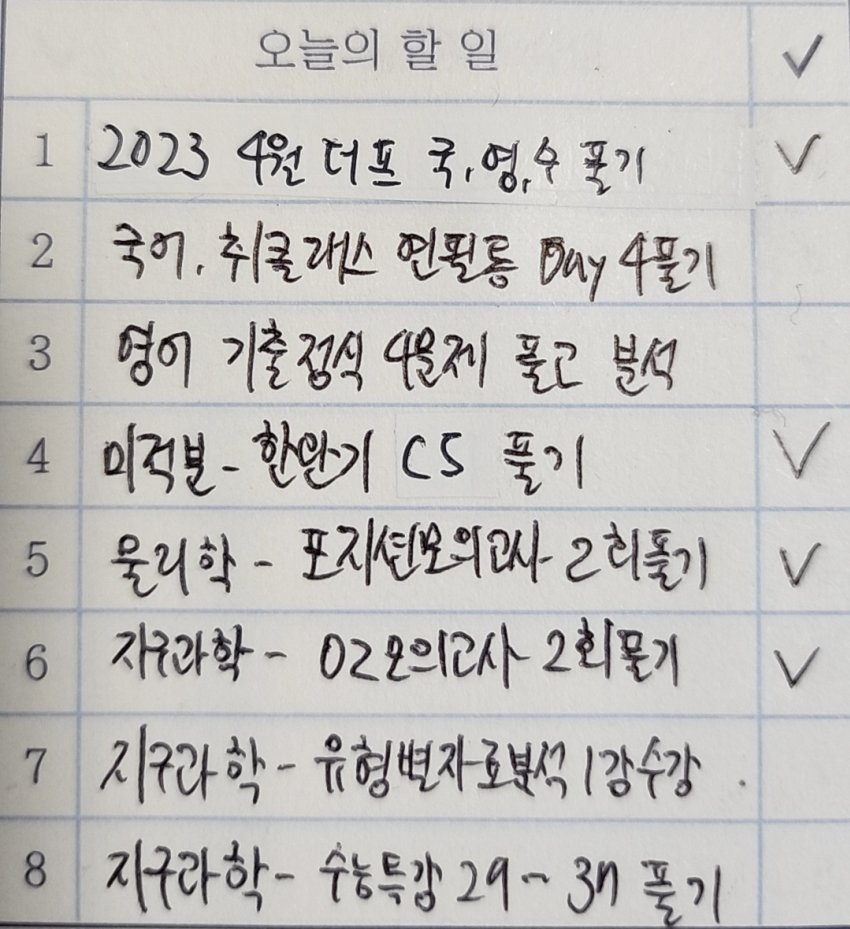 오늘의 할 일 ✓
1 2023 4월 더프 국, 영, 수 풀기 ✓
2 국어, 취클래스 연필통 Day 4풀기
3 영어 기출정식 4문제 풀고 분석
4 미적분 - 한완기 C5 풀기 ✓
5 물리학 - 포지션모의고사 2회풀기 ✓
6 지구과학 - OZ모의고사 2회풀기 ✓
7 지구과학 - 유형별자료분석 1강수강
8 지구과학 - 수능특강 29~37 풀기